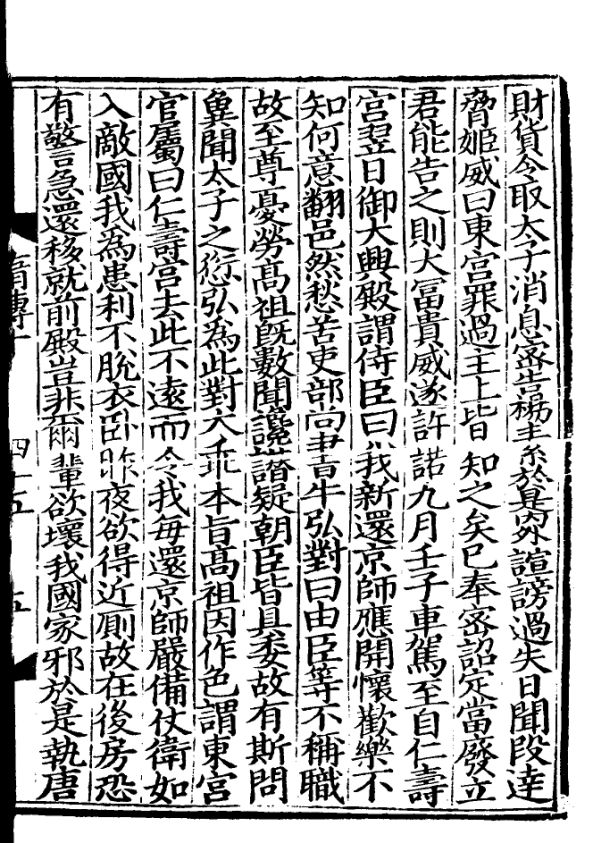 財貨令取太子消息密告楊素於是內外諠謗過失日聞段達
脅姬威曰東宮罪過主上皆知之矣已奉密詔定當發立
君能告之則大冨貴威遂許諾九月壬子車駕至自仁壽
宮翌日御大興殿謂侍臣曰我新還京師應開懷歡樂不
知何意翻邑然愁苦吏部尚書牛弘對曰由臣等不稱職
故至尊憂勞髙祖旣數聞讒譖疑朝臣皆具委故有斯問
冀聞太子之愆弘為此對大乖本旨髙祖因作色謂東宮
官屬曰仁壽宮去此不遠而令我每還京師嚴備仗衛如
入敵國我為患利不脫衣卧昨夜欲得近厠故在後房恐
有警急還移就前殿豈非爾輩欲壞我國家邪於是執唐
四十五
五